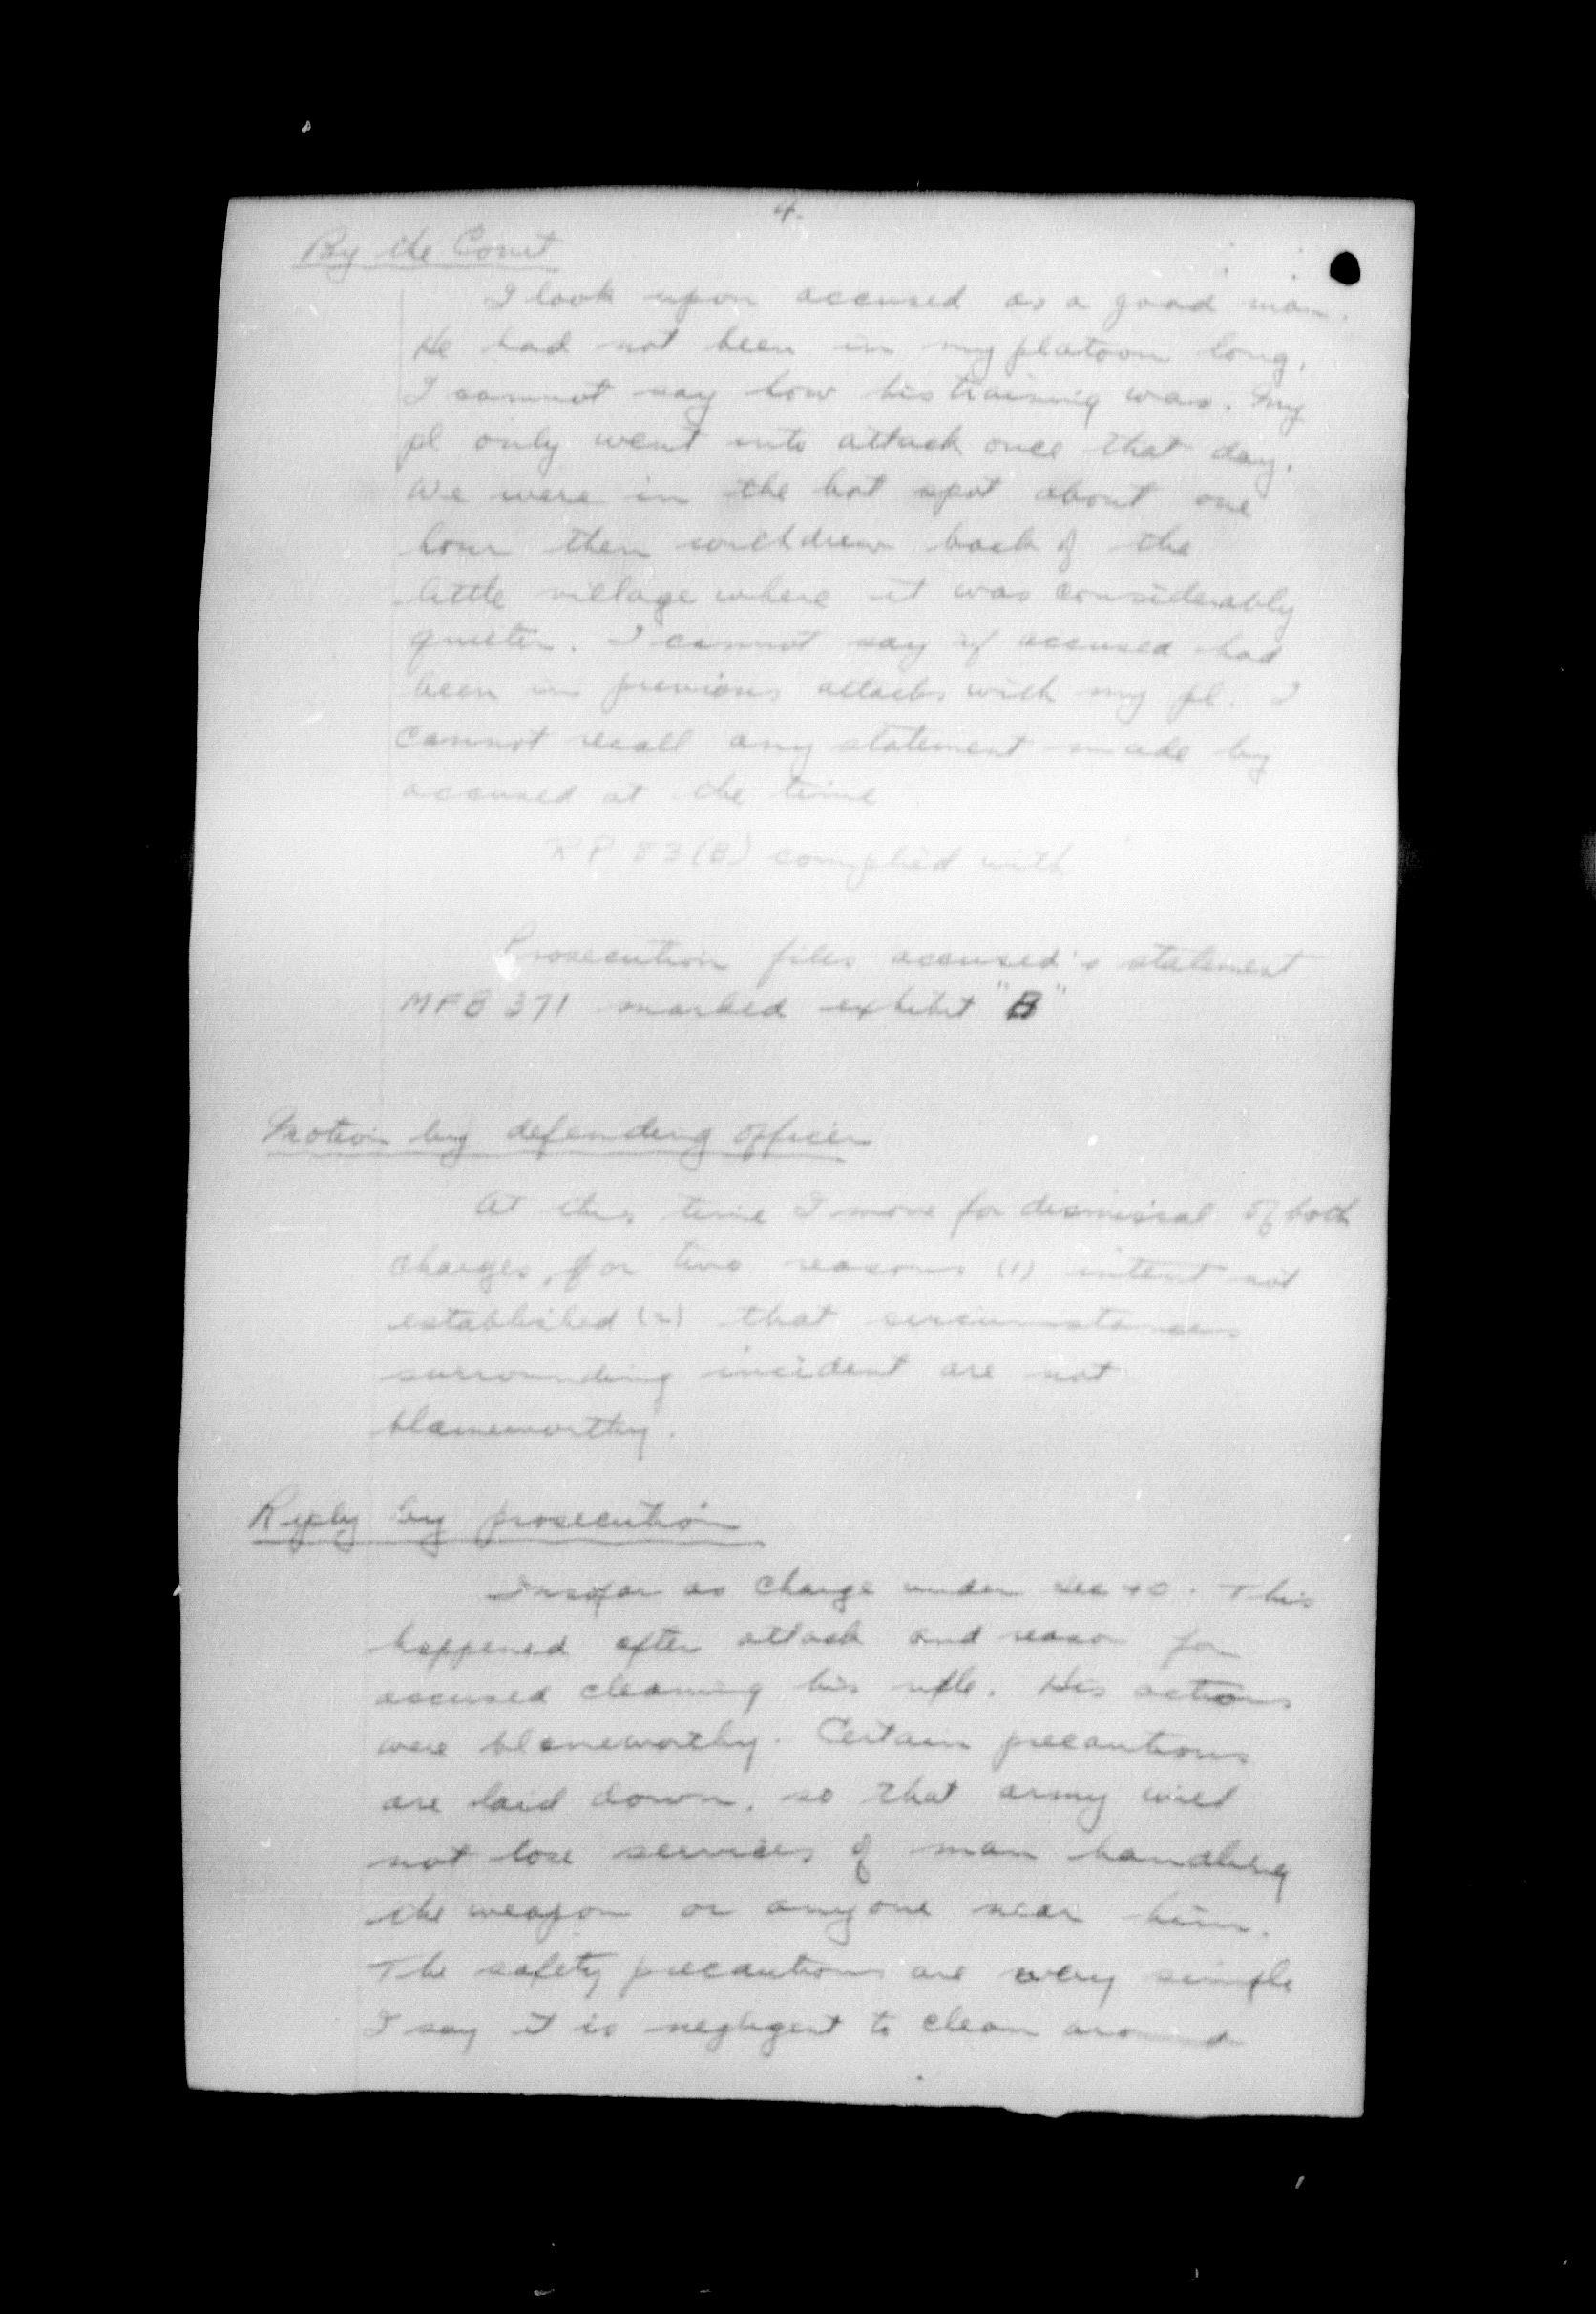 4.
By the Court
I look upon accused as a good man.
He had not been in my platoon long,
I cannot say how his training was. My
pl only went into attack once that day.
We were in the hot spot about one
hour then withdrew back of the
little village where it was considerably
quieter. I cannot say if accused had
been in previous attacks with my pl. I
cannot recall any statement made by
accused at the time
RP 83(B) complied with
Prosecution files accused's statement
MFB 371 marked exhibit "B"
Motion by defending officer
At this time I move for dismissal of both
charges, for two reasons (1) intent not
established (2) that circumstances
surrounding incident are not
blameworthy.
Reply by prosecution
Insofar as charge under sec 40. This
happened after attack and reason for
accused cleaning his rifle. His actions
were blameworthy. Certain precautions
are laid down, so that army will
not lose services of man handling
the weapon or anyone near him.
The safety precautions are very simple
I say it is negligent to clean around